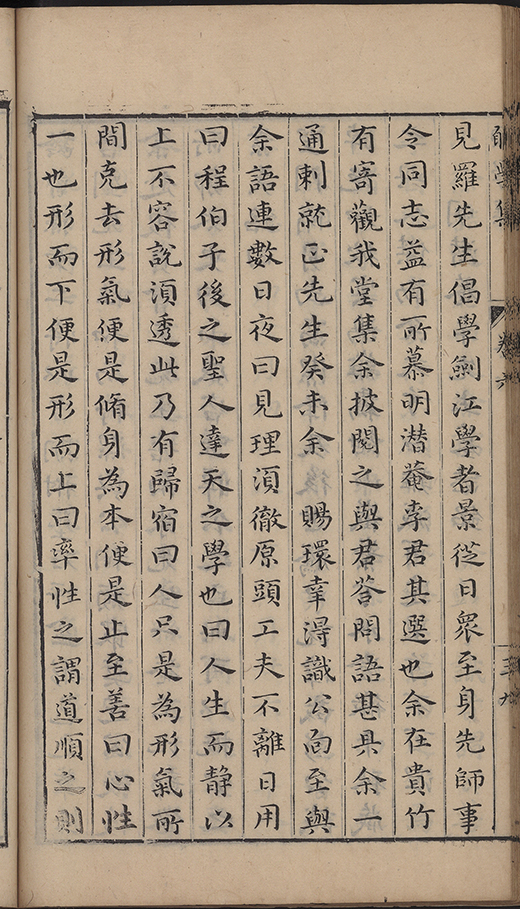 願學集
卷六
三九
見羅先生倡學劍江學者景從日衆至身先師事
令同志益有所慕明潛菴李君其選也余在貴竹
有寄觀我堂集余披閱之與君荅問語甚具余一
通刺就正先生癸未余 賜環幸淂識公向至與
余語連數日夜曰見理須徹原頭工夫不離日用
曰程伯子後之聖人達天之學也曰人生而静以
上不容說湏透此乃有歸宿曰人只是為形氣所
間克去形氣便是脩身為本便是止至善曰心性
一也形而下便是形而上曰率性之謂道順之則